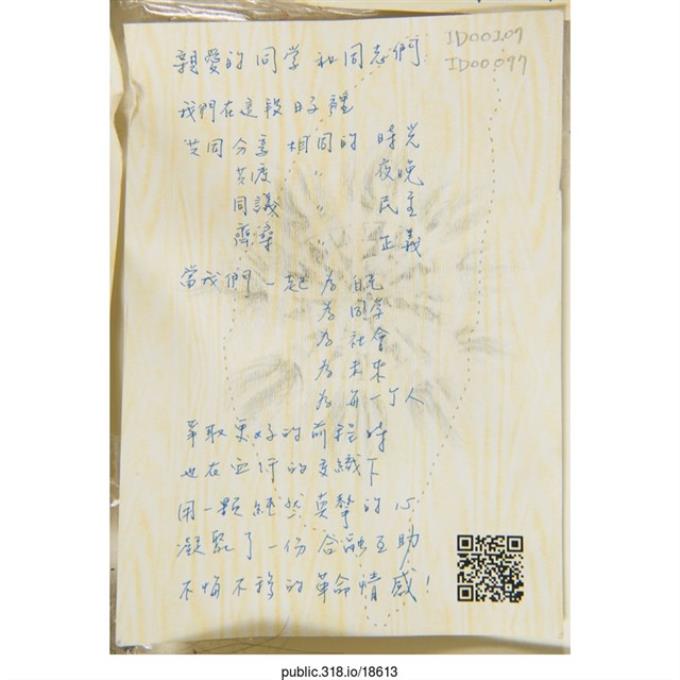 ID00209
ID00097
親愛的同学和同志們:
我們在這段日子裡
共同分享 相同的 時光
共度 〃 夜晚
同議 〃 民主
齊 〃 正義
當我們一起 為 自己
為 同学
為 社會
為 未来
為 每一个人
爭取更好的前程時
也在血汗的交織下
用一顆純然真摯的心
凝聚了一份合融互助
不悔不移的革命情感!
public.318.io/18613